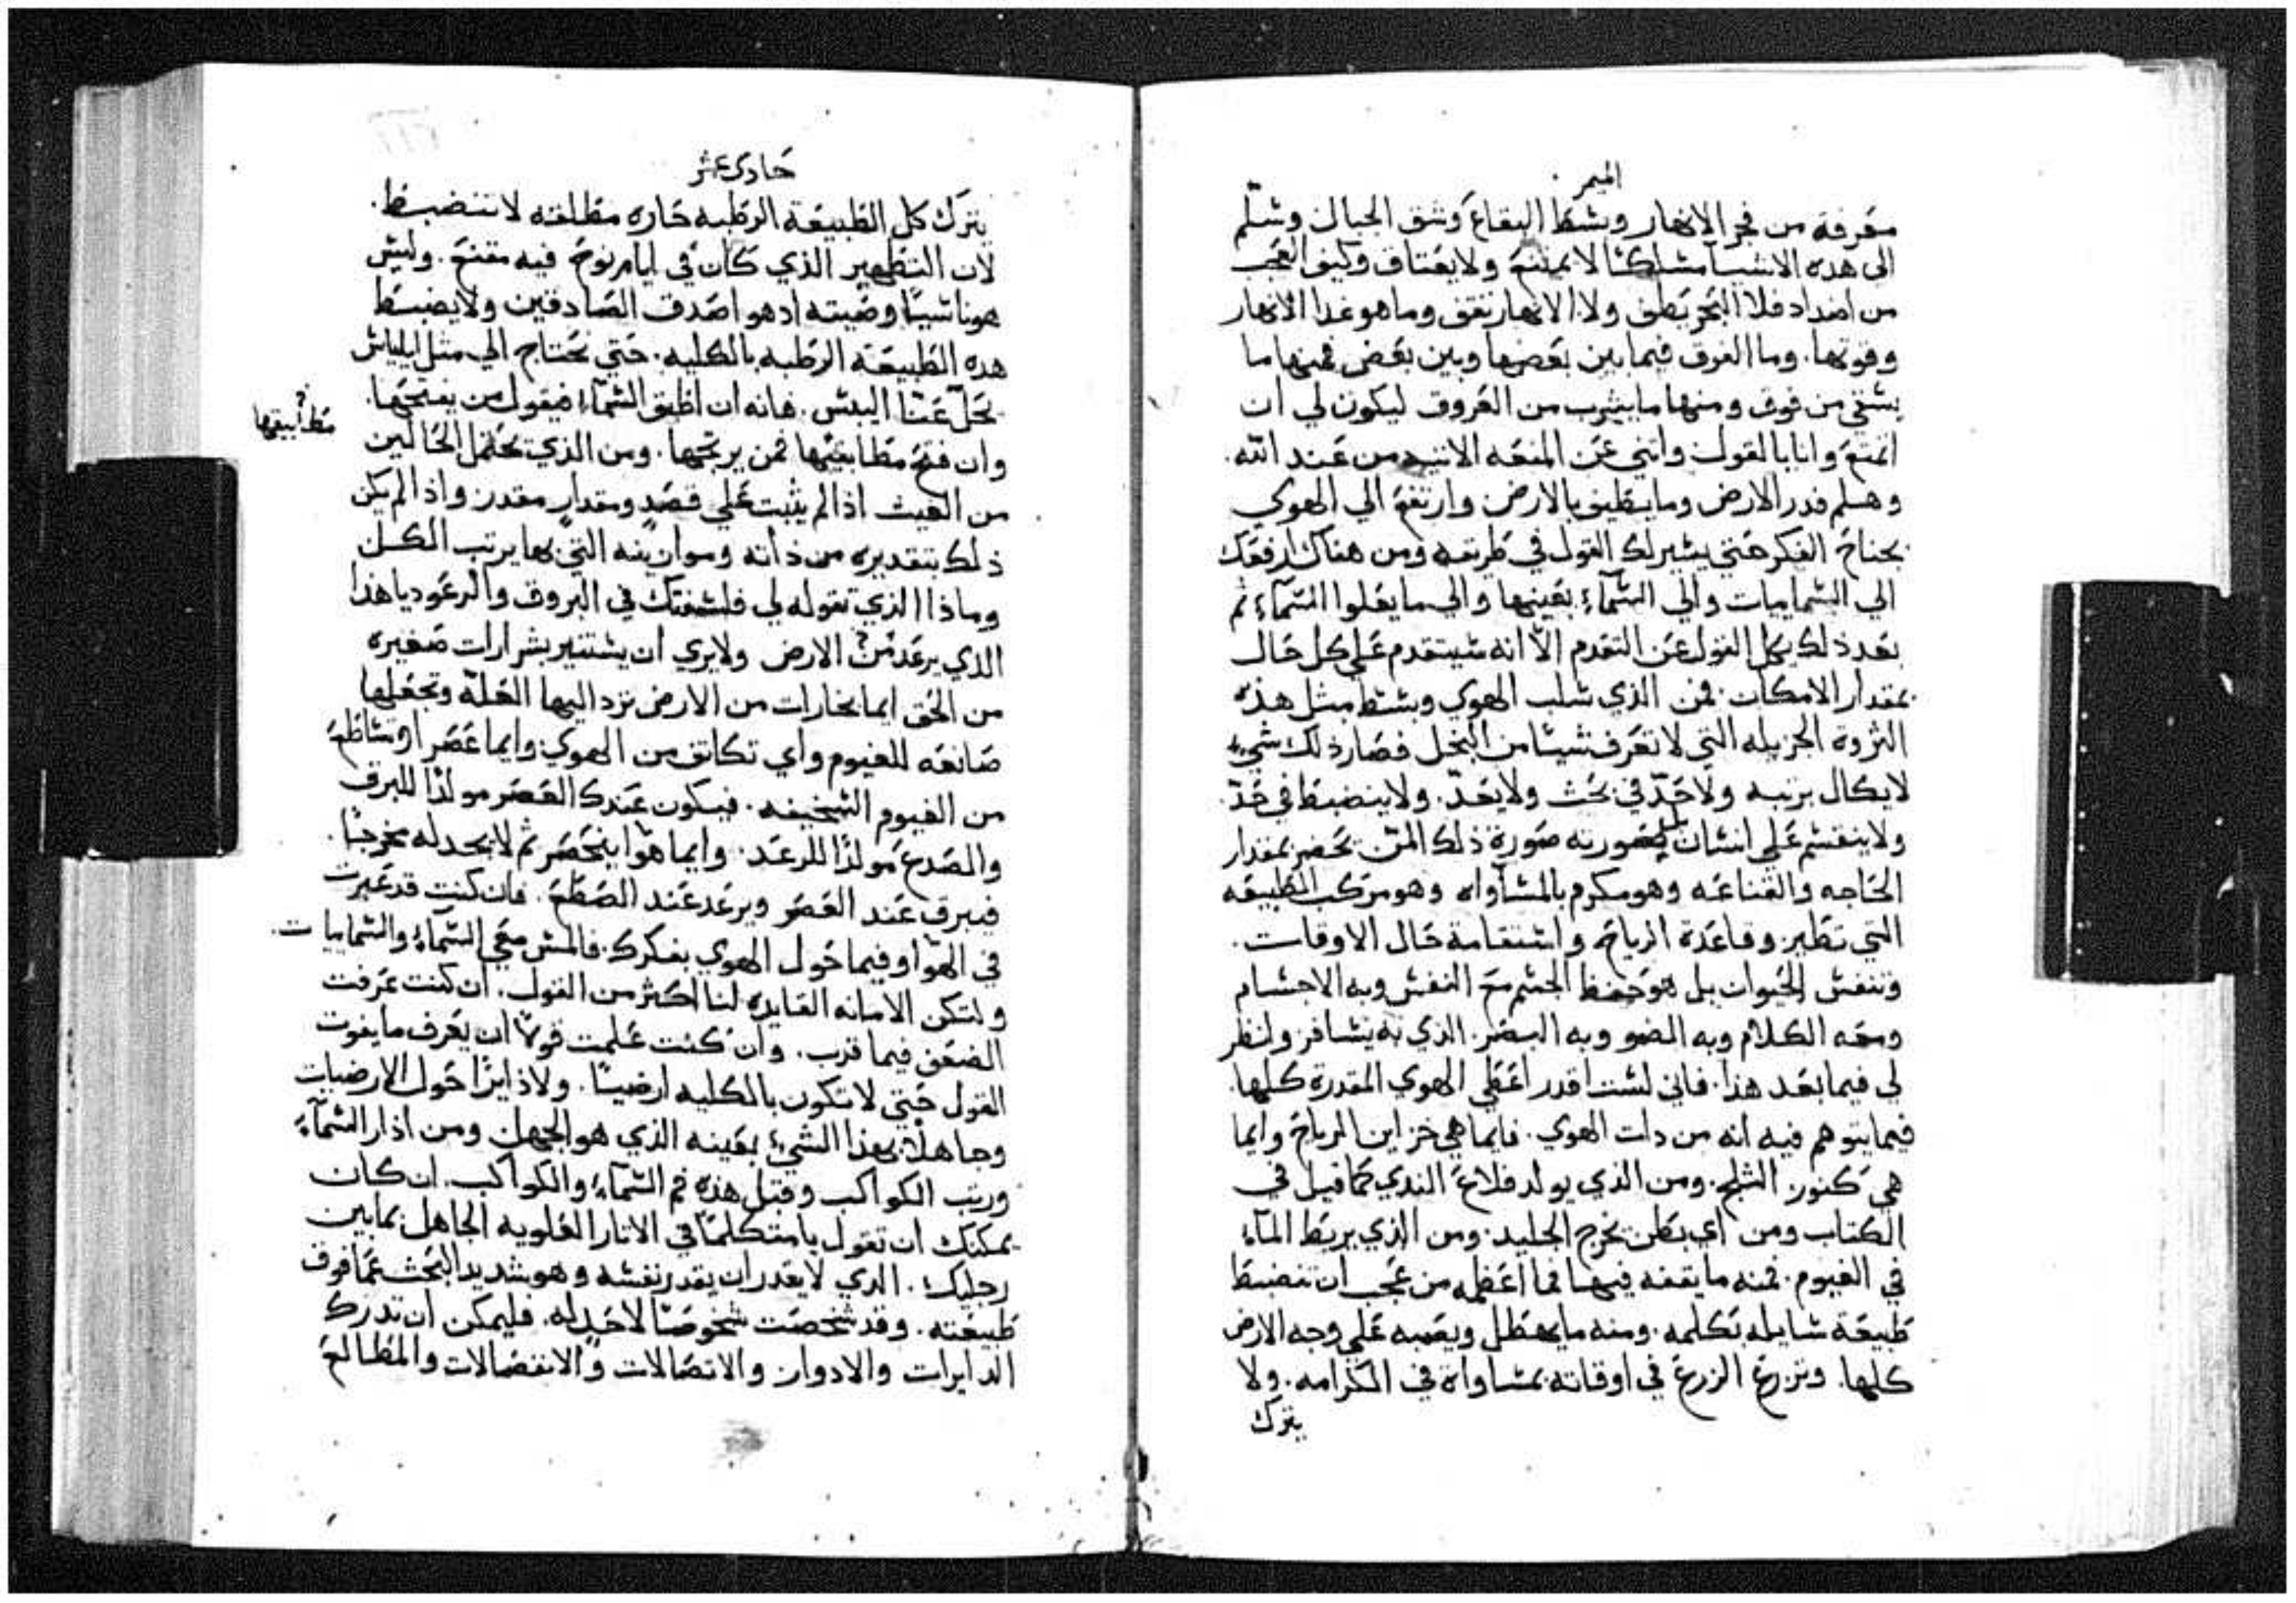 الميمر
معرفة من فجر الانهار وبسط البقاع وشق الجبال وسلم
الى هده الاشيا مسلكًا لا يمتنع ولا يعتاق وكيف العجب
من اضداد فلا البحر يطف ولا الانهار تقف وما هو غدا الانهار
وقوتها. وما الفرق فيما بين بعضها وبين بعض فمنها ما
يسقي من فوق ومنها ما يشرب من العروق ليكون لي ان
اتمتع وانا بالقول واثني عن المنعه الاتيه من عند الله.
وهلم فدر الارض وما يطيف بالارض وارتفع الي الهوي
بجناح الفكر حتي يسير لك القول في طريقه ومن هناك ارفعك
الي السماييات والي السمآء بعينها والي ما يعلوا السمآء ثم
بعد ذلك يكل القول عن التقدم الّا انه سيتقدم علي كل حال
بمقدار الامكان. فمن الذي سلب الهوي وبسط مثل هذه
الثروه الجزيله التي لا تعرف شيئا من البخل فصار ذلك شيء
لا يكال برتبه ولا حدّ في بحث ولا يحدّ. ولا ينضبط في حدّ.
ولا ينقسم علي انسان صورته صورة ذلك المن بحصر بمقدار
الحاجه والقناعه وهو مكرم بالمساواه وهو مركب الطبيعه
التي تطير وقاعدة الرياح واستقامة حال الاوقات.
وتنفس الحيوان بل هو حفظ الجسم مع النفس وبه الاجسام
ومعه الكلام وبه الضو وبه البصر. الذي به يسافر ولنظر
لي فيما بعد هذا. فاني لست اقدر اعطي الهوي المقدرة كلها.
فيما يتوهم فيه انه من دات الهوي. فايما هي خزاين الرياح وايما
هي كنوز الثلج. ومن الذي يولد قلاع الندي كما قيل في
الكتاب ومن اي بطن يخرج الجليد. ومن الذي يربط المآء
في الغيوم. فمنه ما يقفه فيها فما اعظمه من عجب ان تنضبط
طبيعة سايله بكلمه. ومنه ما يهطل ويصبه علي وجه الارض
كلها. وتزرع الزرع في اوقاته بمساواة في الكرامه. ولا
يترك
حادي عشر
يترك كل الطبيعة الرطبه حاره مطلقه لا تنضبط.
لان التطهير الذي كان في ايام نوح فيه مقنع. وليس
هو ناسيًا وصيته اد هو اصدق الصادقين ولا يضبط
هده الطبيعة الرطبه بالكليه. حتي نحتاج الي مثل ايلياس
يحل عنّا اليبس. فانه ان اطبق السمآء فيقول من يفتحها.
مطابيقها
وان فتح مطابقها فمن يرتجها. ومن الذي يحتمل الحالين
من الغيث اذا لم يثبت علي قصدٍ ومقدارٍ مقدر واذا لم يكن
ذلك بتقديره من ذاته وموازينه التي بها يرتب الكل
وماذا الذي تقوله لي فلسفتك في البروق والرعود يا هذا
الذي يرعد من الارض ولا يري ان يستنير بشرارات صغيره
من الحق ايما بخارات من الارض ترد اليها العله وتجعلها
صانعه للغيوم واي تكاثف من الهوي وايما عصر او تساطع
من الغيوم السخيفه. فيكون عندك العصر مولدًا للبرق
والصدع مولدًا للرعد. وايما هوا ينحصر ثم لا يجد له مخرجًا.
فيبرق عند العصر ويرعد عند الصطع. فان كنت قد عبرت
في الهوا وفيما حول الهوي بفكرك. فالمس معي السمآء والسماييات.
ولتكن الامانه القايده لنا اكثر من القول. ان كنت عرفت
الضعف فيما قرب. وان كنت علمت قولًا ان يعرف ما يفوت
القول حتي لا تكون بالكليه ارضيًا. ولا ذايرًا حول الارضيات
وجاهلًا بهذا الشيء بعينه الذي هو الجهل ومن اذار السمآء
ورتب الكواكب وقبل هذه فم السمآء والكواكب. ان كان
يمكنك ان تقول يا متكلمًا في الاثار العلويه الجاهل بما بين
رجليك. الذي لا يقدر ان يقدر نفسه وهو شديد البحث عما فوق
طبيعته. وقد شخصت شخوصًا لا حد له. فليمكن ان تدرك
الدايرات والادوار والاتصالات والانفصالات والمطالع